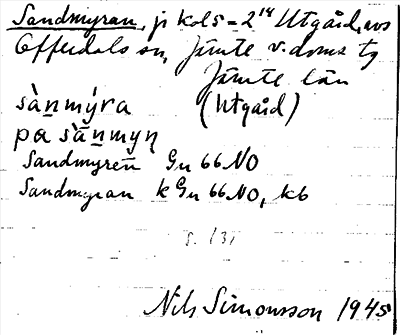 Sandmyran, ji kol5 = 2¹⁴ Utgård, avs
Offerdals sn, Jämte v. doms tg
Jämte län
sàn̲mýra (Utgård)
pa sàn̲myn̥
Sandmyren Gu 66 NO
Sandmyran k Gu 66 NO, kb
s. 131
Nils Simonsson 1945